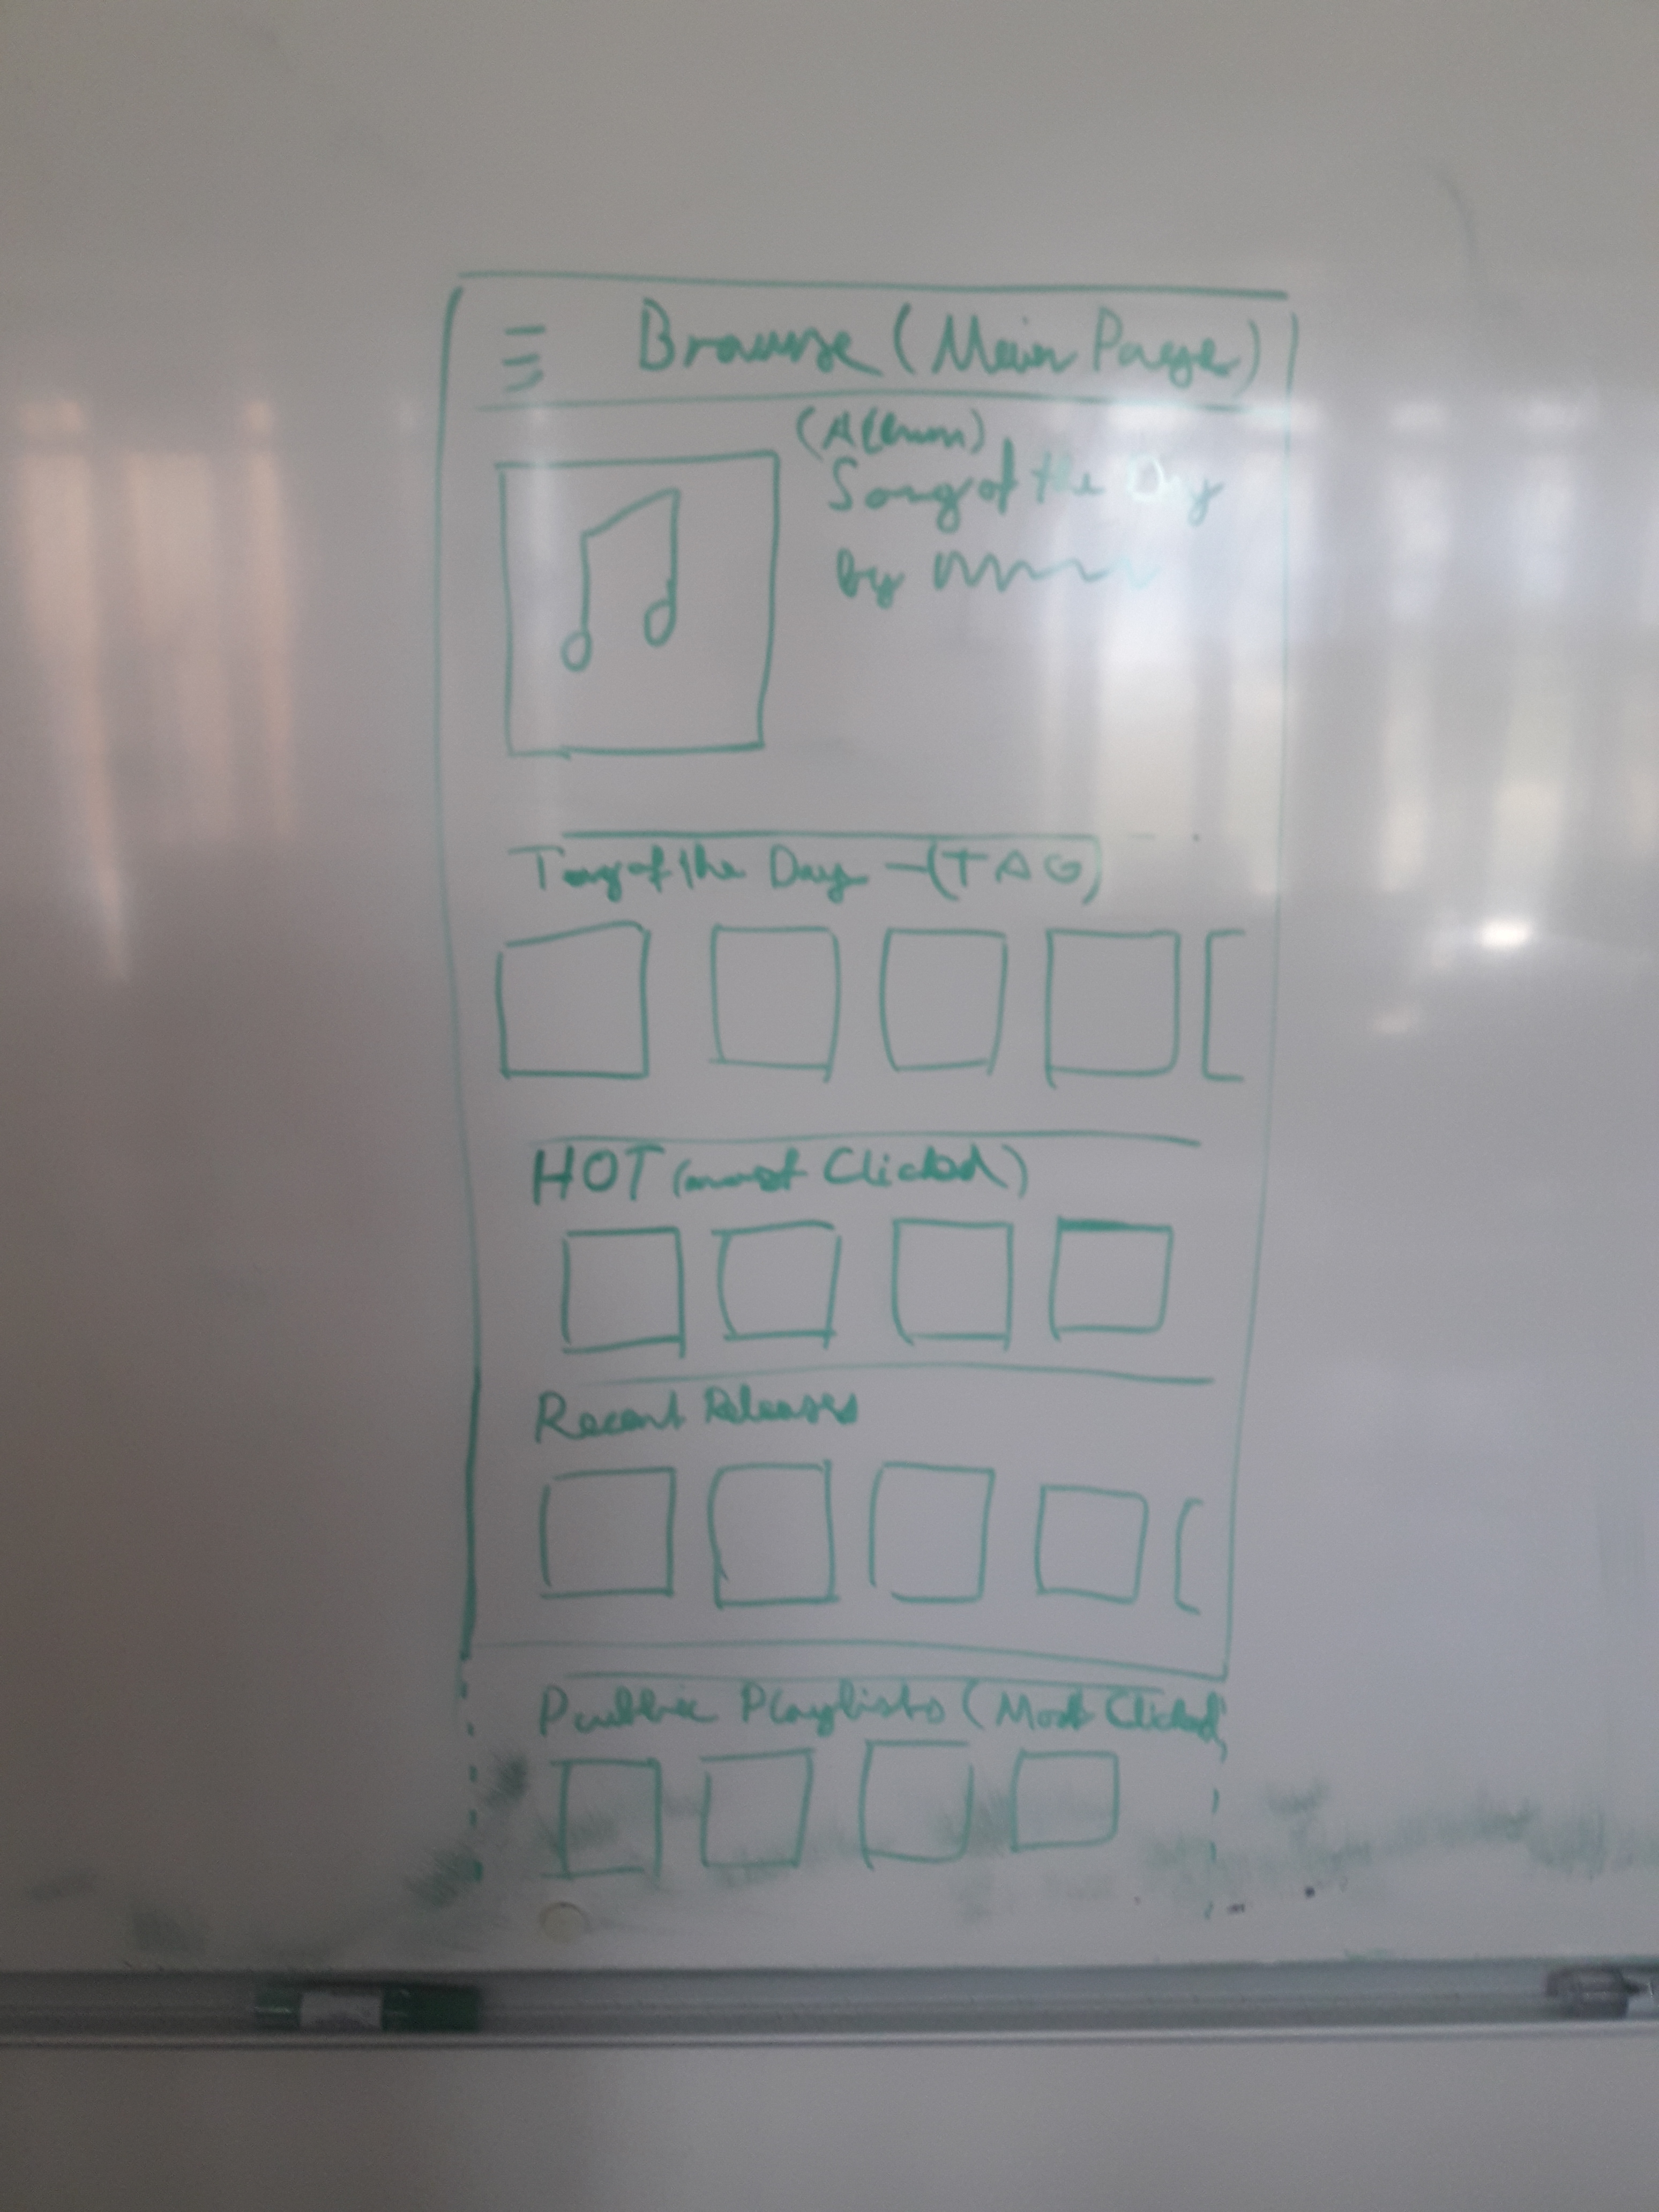 Browse (Main Page)
(Album)
Song of the Day
by
Tag of the Day - (TAG)
HOT (most Clicked)
Recent Releases
Public Playlists (Most Clicked)